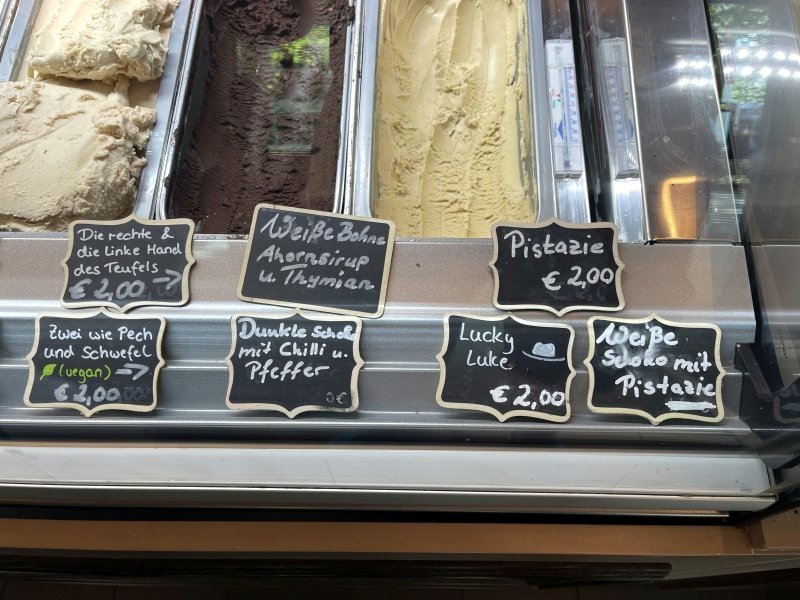 Die rechte &
die linke Hand
des Teufels →
€ 2,00
Weiße Bohne
Ahornsirup
u. Thymian
Pistazie
€ 2,00
Zwei wie Pech
und Schwefel
(vegan) →
€ 2,00
Dunkle Schoko
mit Chilli u.
Pfeffer
0€
Lucky
Luke
€ 2,00
Weiße
Schoko mit
Pistazie